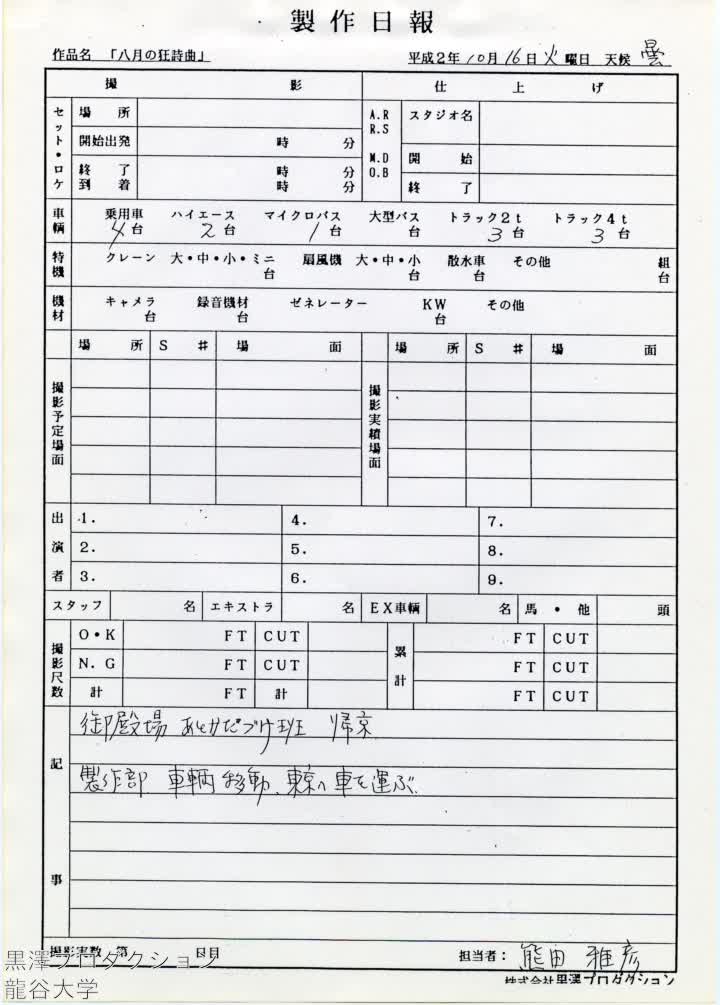 製作日報
作品名 「八月の狂詩曲」 平成2年 10月 16日 火曜日 天候 曇
撮影 仕上げ
セット・ロケ 場所 A.R R.S スタジオ名
開始出発 時 分 M.D O.B 開始
終了 時 分 終了
到着 時 分
車輌 乗用車 ハイエース マイクロバス 大型バス トラック2t トラック4t
4台 2台 1台 台 3台 3台
特機 クレーン 大・中・小・ミニ 扇風機 大・中・小 散水車 その他 組
台 台 台 台
機材 キャメラ 録音機材 ゼネレーター KW その他
台 台 台
場所 S # 場面 場所 S # 場面
撮影予定場面 撮影実績場面
出演者 1. 4. 7.
2. 5. 8.
3. 6. 9.
スタッフ 名 エキストラ 名 EX車輌 名 馬・他 頭
撮影尺数 O・K FT CUT 累計 FT CUT
N.G FT CUT FT CUT
計 FT 計 FT CUT
記事
御殿場 あとかたづけ班 帰京
製作部 車輌移動、東京へ車を運ぶ
撮影実数 第 日目 担当者: 熊田雅彦
株式会社黒澤プロダクション
黒澤プロダクション
龍谷大学